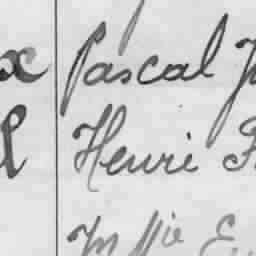 x Pascal J
l Henri F
Mllie E